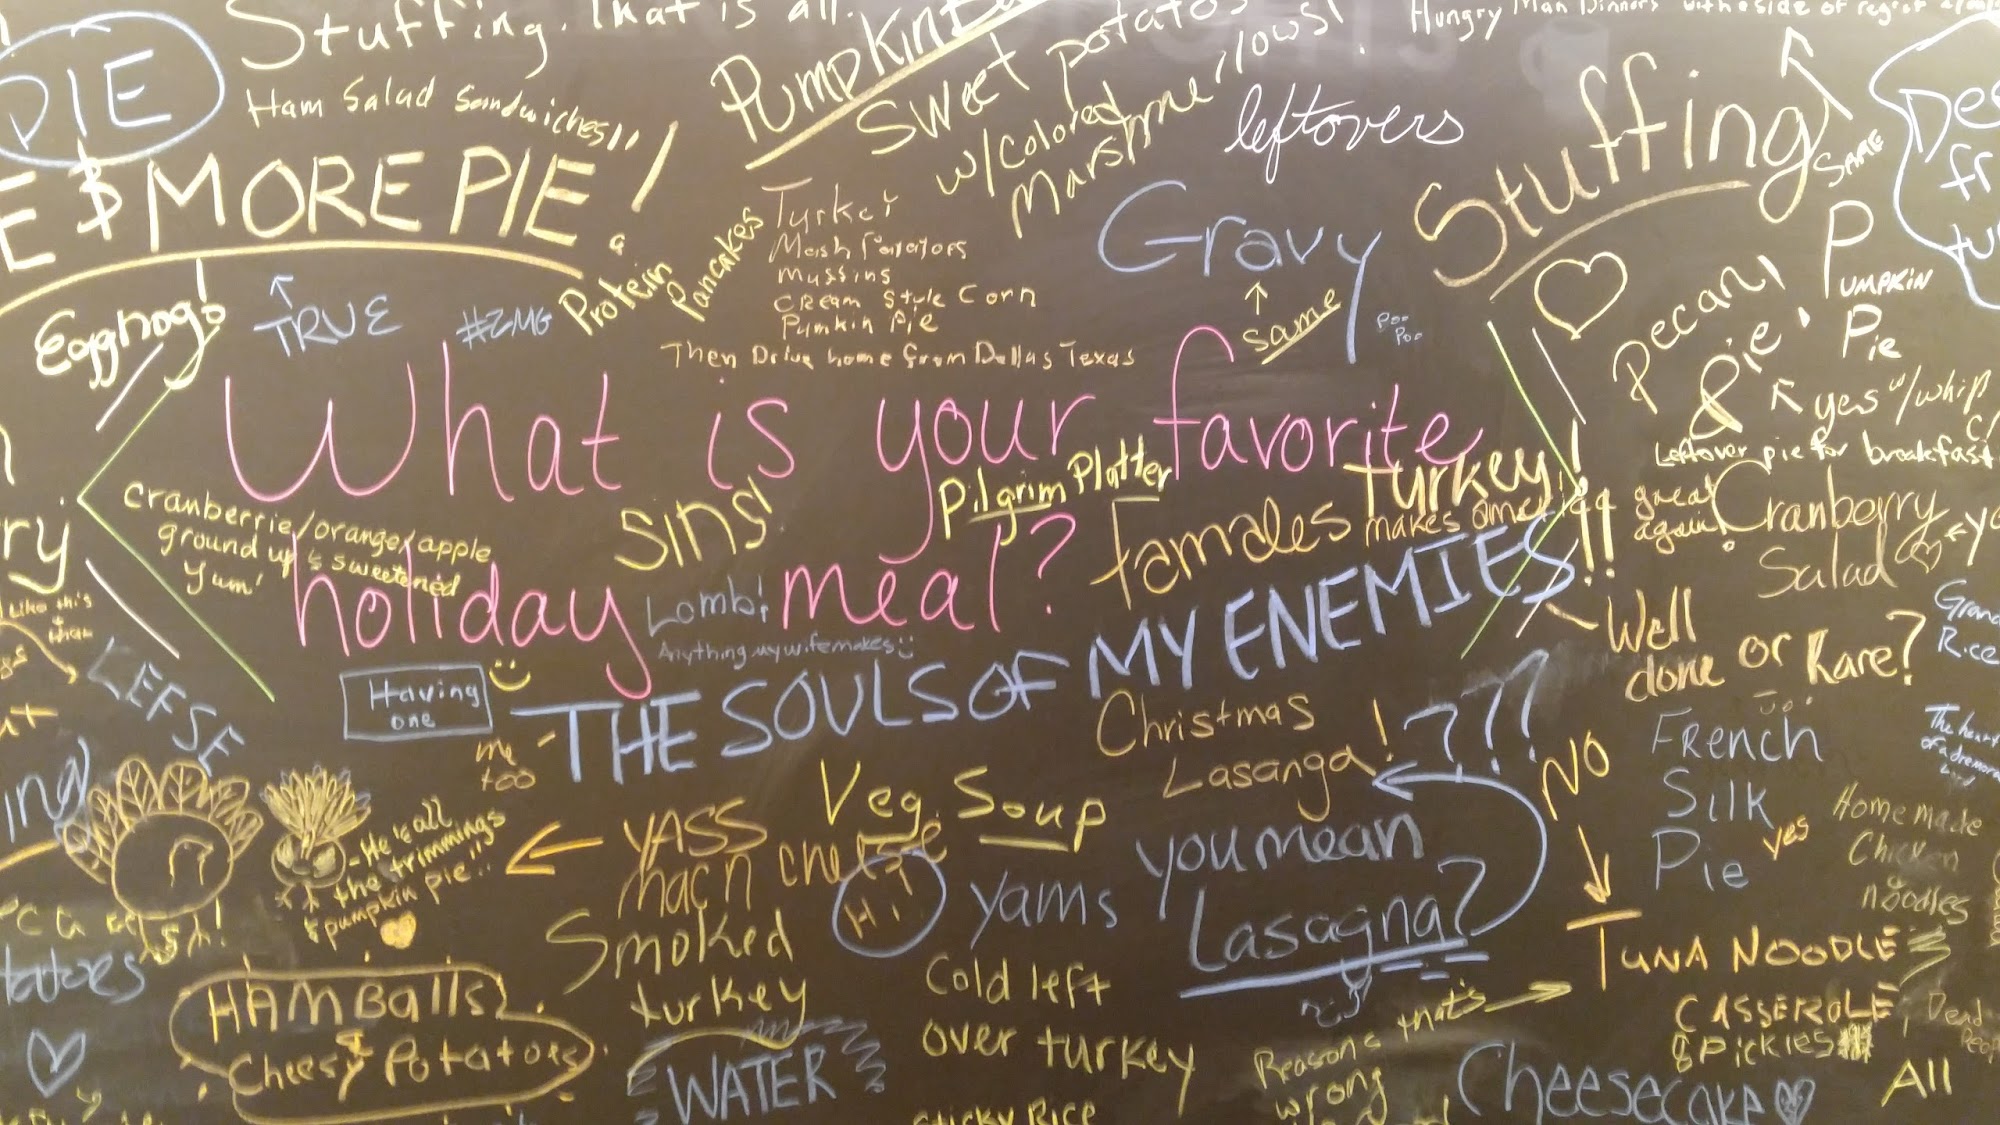 Stuffing. That is all.
Hungry Man Dinners with a side of regret
PIE
Ham Salad Sandwiches!!
& MORE PIE!
Pumpkin
Sweet potatoes
w/colored
Marshmellows!
leftovers
Stuffing
SAME
Gravy
same
Poo
Poo
Turkey
Mash Potatoes
Muffins
Cream Style Corn
Pumkin Pie
Then Drive home from Dallas Texas
Pancakes
Protein
#ZMG
TRUE
Eggnog!
Pumpkin
Pie
Pecan
Pie!
&
yes w/whip
Leftover pie for breakfast
What is your favorite
holiday meal?
Cranberrie/orange/apple
ground up & sweetened
Yum!
SINS!
Pilgrim Platter
Turkey!
makes america
great
again!
Tamales
Cranberry
Salad
Lamb!
Anything my wife makes
THE SOULS OF MY ENEMIES!!
Well
done or Rare?
Like this
LEFSE
Having
one
me
too
Christmas
Lasanga!
???
you mean
Lasagna?
NO
French
Silk
Pie
yes
Homemade
Chicken
noodles
He is all
the trimmings
& pumpkin pie!!
YASS
Veg. Soup
mac n cheese
Hi
yams
Smoked
turkey
Cold left
over turkey
HAM Balls
& Cheesy Potatoes
WATER
Sticky Rice
Reasons that's
wrong
TUNA NOODLE
CASSEROLE
& PICKLES
Dead
People
Cheesecake
All